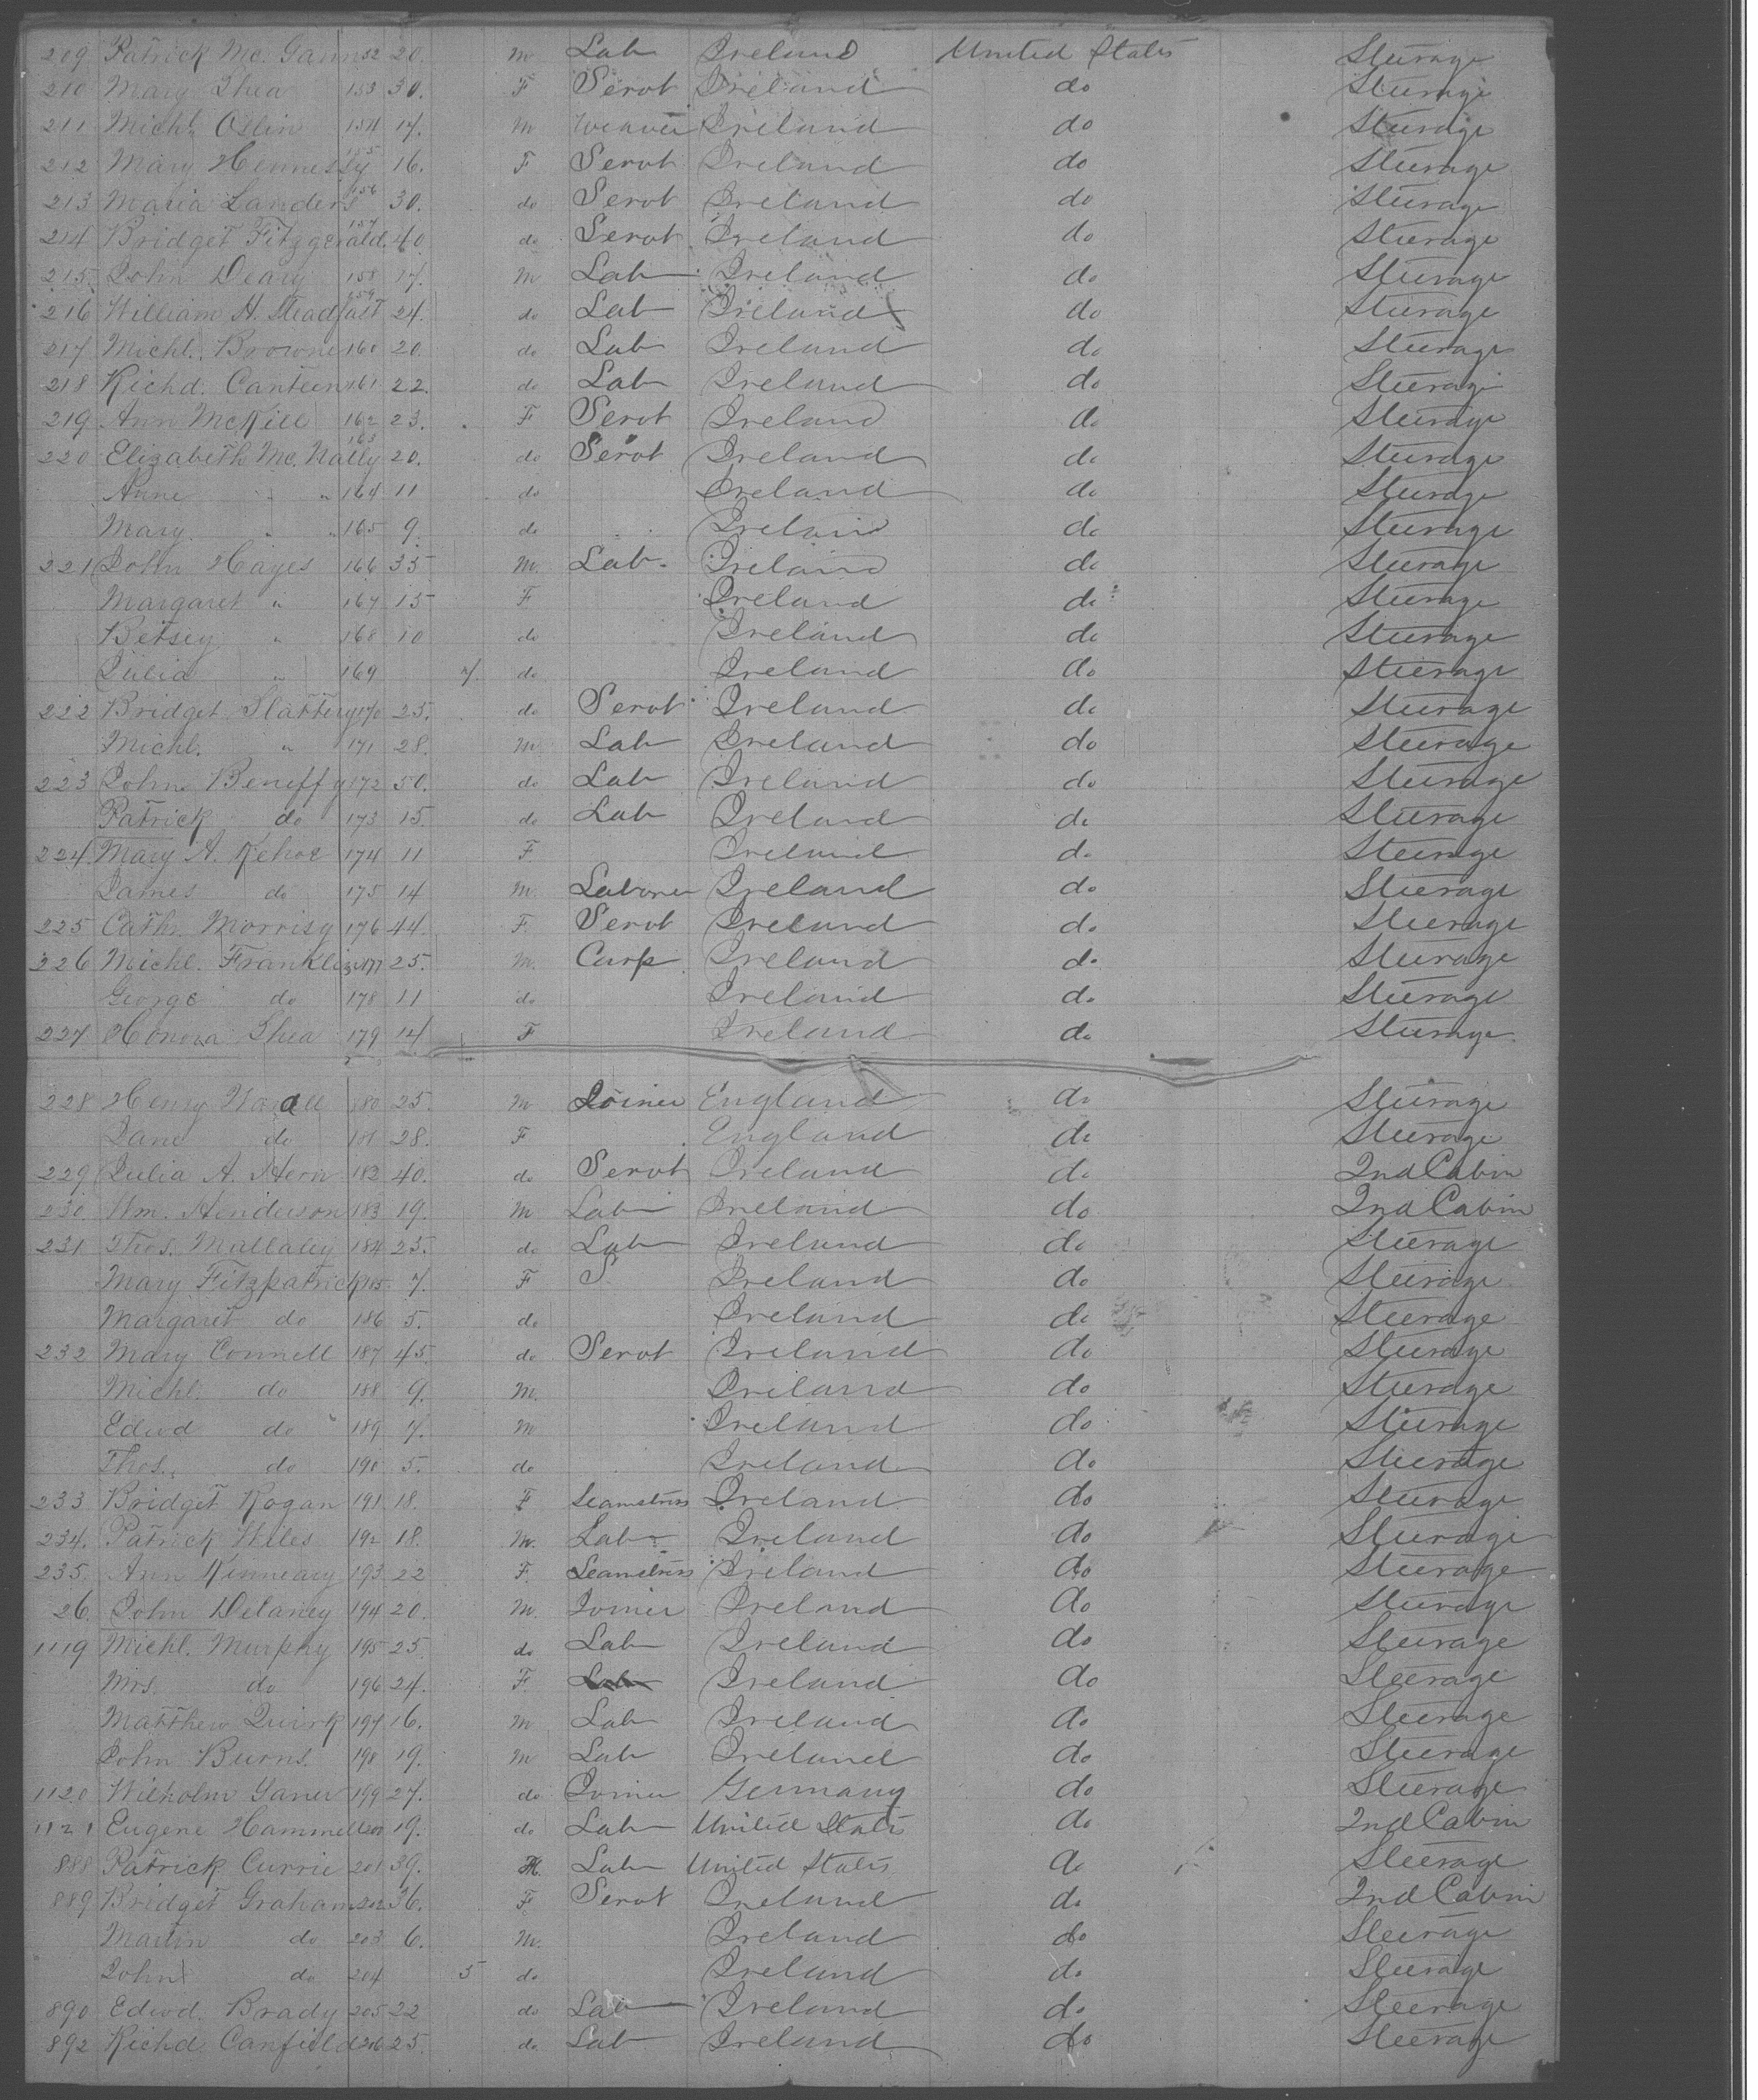 209 Patrick Mc. Gann 152 20. M Lab Ireland United States Steerage
210 Mary Shea 153 30. F Servt Ireland do Steerage
211 Michl. 154 17. M Weaver Ireland do Steerage
212 Mary Hennessy 155 16. F Servt Ireland do Steerage
213 Maria Landers 156 30. do Servt Ireland do Steerage
214 Bridget Fitzgerald. 157 40 do Servt Ireland do Steerage
215. John Deary 158 17. M Lab Ireland do Steerage
216 William H. Steadfast 159 24. do Lab Ireland do Steerage
217 Michl. Browne 160 20. do Lab Ireland do Steerage
218 Richd. Canteen 161 22. do Lab Ireland do Steerage
219 Ann McKill 162 23. F Servt Ireland do Steerage
220 Elizabeth Mc. Nally 163 20. do Servt Ireland do Steerage
Anne " " 164 11 do Ireland do Steerage
Mary " " 165 9. do Ireland do Steerage
221 John Hayes 166 35 M. Lab. Ireland do Steerage
Margaret " 167 15 F Ireland do Steerage
Betsey " 168 10 do Ireland do Steerage
Julia " 169 7. do Ireland do Steerage
222 Bridget Slattery 170 25. do Servt Ireland do Steerage
Michl. " 171 28. M Lab Ireland do Steerage
223 John Beneffy 172 50. do Lab Ireland do Steerage
Patrick do 173 15. do Lab Ireland do Steerage
224. Mary A. Kehoe 174 11 F Ireland do Steerage
James do 175 14 M. Laborer Ireland do Steerage
225 Cath. Morrisy 176 44. F. Servt Ireland do Steerage
226 Michl. Franklin 177 25. M. Carp Ireland do Steerage
George do 178 11 do Ireland do Steerage
227. Honora Shea 179 14 F Ireland do Steerage.
228 Henry 180 25. M Joiner England do Steerage
Jane do 181 28. F England do Steerage
229 Julia A. Hern 182 40. do Servt Ireland do 2nd Cabin
230. Wm. Henderson 183 19. M Lab Ireland do 2nd Cabin
231 Thos. Mallaley 184 25. do Lab Ireland do Steerage
Mary Fitzpatrick 185 7. F S. Ireland do Steerage
Margaret do 186 5. do Ireland do Steerage
232 Mary Connell 187 45. do Servt Ireland do Steerage
Michl. do 188 9. M. Ireland do Steerage
Edwd do 189 7. M Ireland do Steerage
Thos. do 190 5. do Ireland do Steerage
233 Bridget Rogan 191 18. F Seamstress Ireland do Steerage
234. Patrick Wiles 192 18. M. Lab Ireland do Steerage
235. Ann Kenneary 193 22 F. Seamstress Ireland do Steerage
26. John Delaney 194 20. M. Joiner Ireland do Steerage
1119 Michl. Murphy 195 25. do Lab Ireland do Steerage
Mrs. do 196 24. F. Lab Ireland do Steerage
Matthew Quirk 197 16. M Lab Ireland do Steerage
John Burns. 198 19. M Lab Ireland do Steerage
1120 Wilholm Ganer 199 27. do Joiner Germany do Steerage
1121 Eugene Hammell 200 19. do Lab United States do 2nd Cabin
888 Patrick Currie 201 39. M. Lab United States do Steerage
889 Bridget Graham 202 36. F. Servt Ireland do 2nd Cabin
Martin do 203 6. M. Ireland do Steerage
John do 204 5 do Ireland do Steerage
890 Edwd. Brady 205 22 do Lab Ireland do Steerage
892 Richd. Canfield 206 25. do Lab Ireland do Steerage